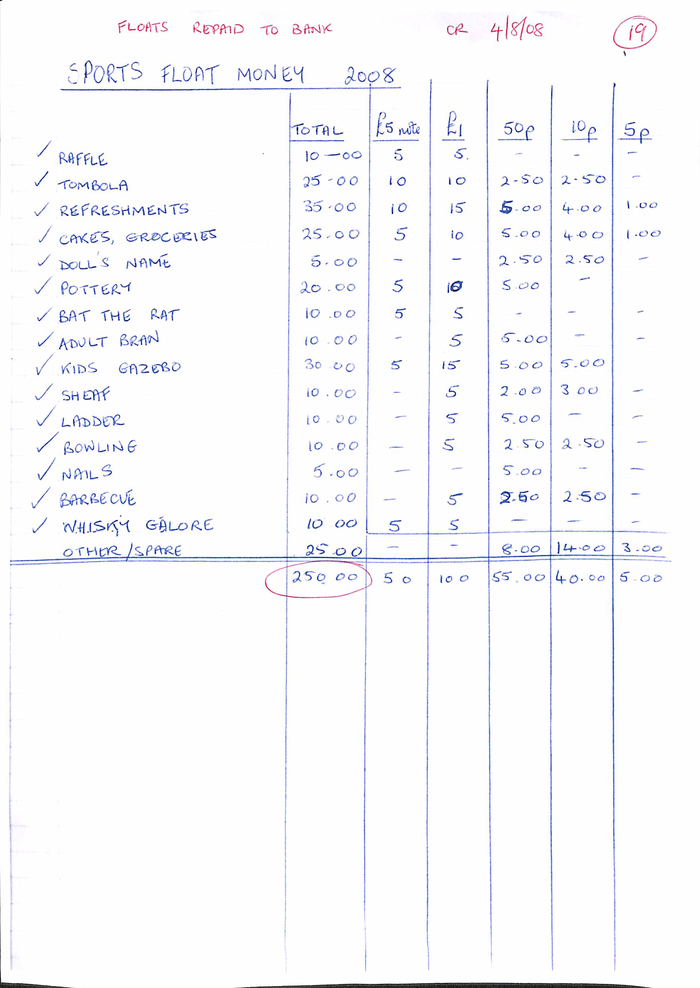 FLOATS REPAID TO BANK CR 4/8/08 19
SPORTS FLOAT MONEY 2008
TOTAL £5 note £1 50p 10p 5p
✓ RAFFLE 10-00 5 5. - - -
✓ TOMBOLA 25-00 10 10 2-50 2-50 -
✓ REFRESHMENTS 35-00 10 15 5.00 4.00 1.00
✓ CAKES, GROCERIES 25.00 5 10 5.00 4.00 1.00
✓ DOLL'S NAME 5.00 - - 2.50 2.50 -
✓ POTTERY 20.00 5 10 5.00 -
✓ BAT THE RAT 10.00 5 5 - - -
✓ ADULT BRAN 10.00 - 5 5.00 - -
✓ KIDS GAZEBO 30 00 5 15 5.00 5.00
✓ SHEAF 10.00 - 5 2.00 3 00 -
✓ LADDER 10.00 - 5 5.00 - -
✓ BOWLING 10.00 - 5 2.50 2.50 -
✓ NAILS 5.00 - - 5.00 - -
✓ BARBECUE 10.00 - 5 2.50 2.50 -
✓ WHISKY GALORE 10 00 5 5 - - -
OTHER/SPARE 25.00 - - 8.00 14.00 3.00
250.00 50 100 55.00 40.00 5.00